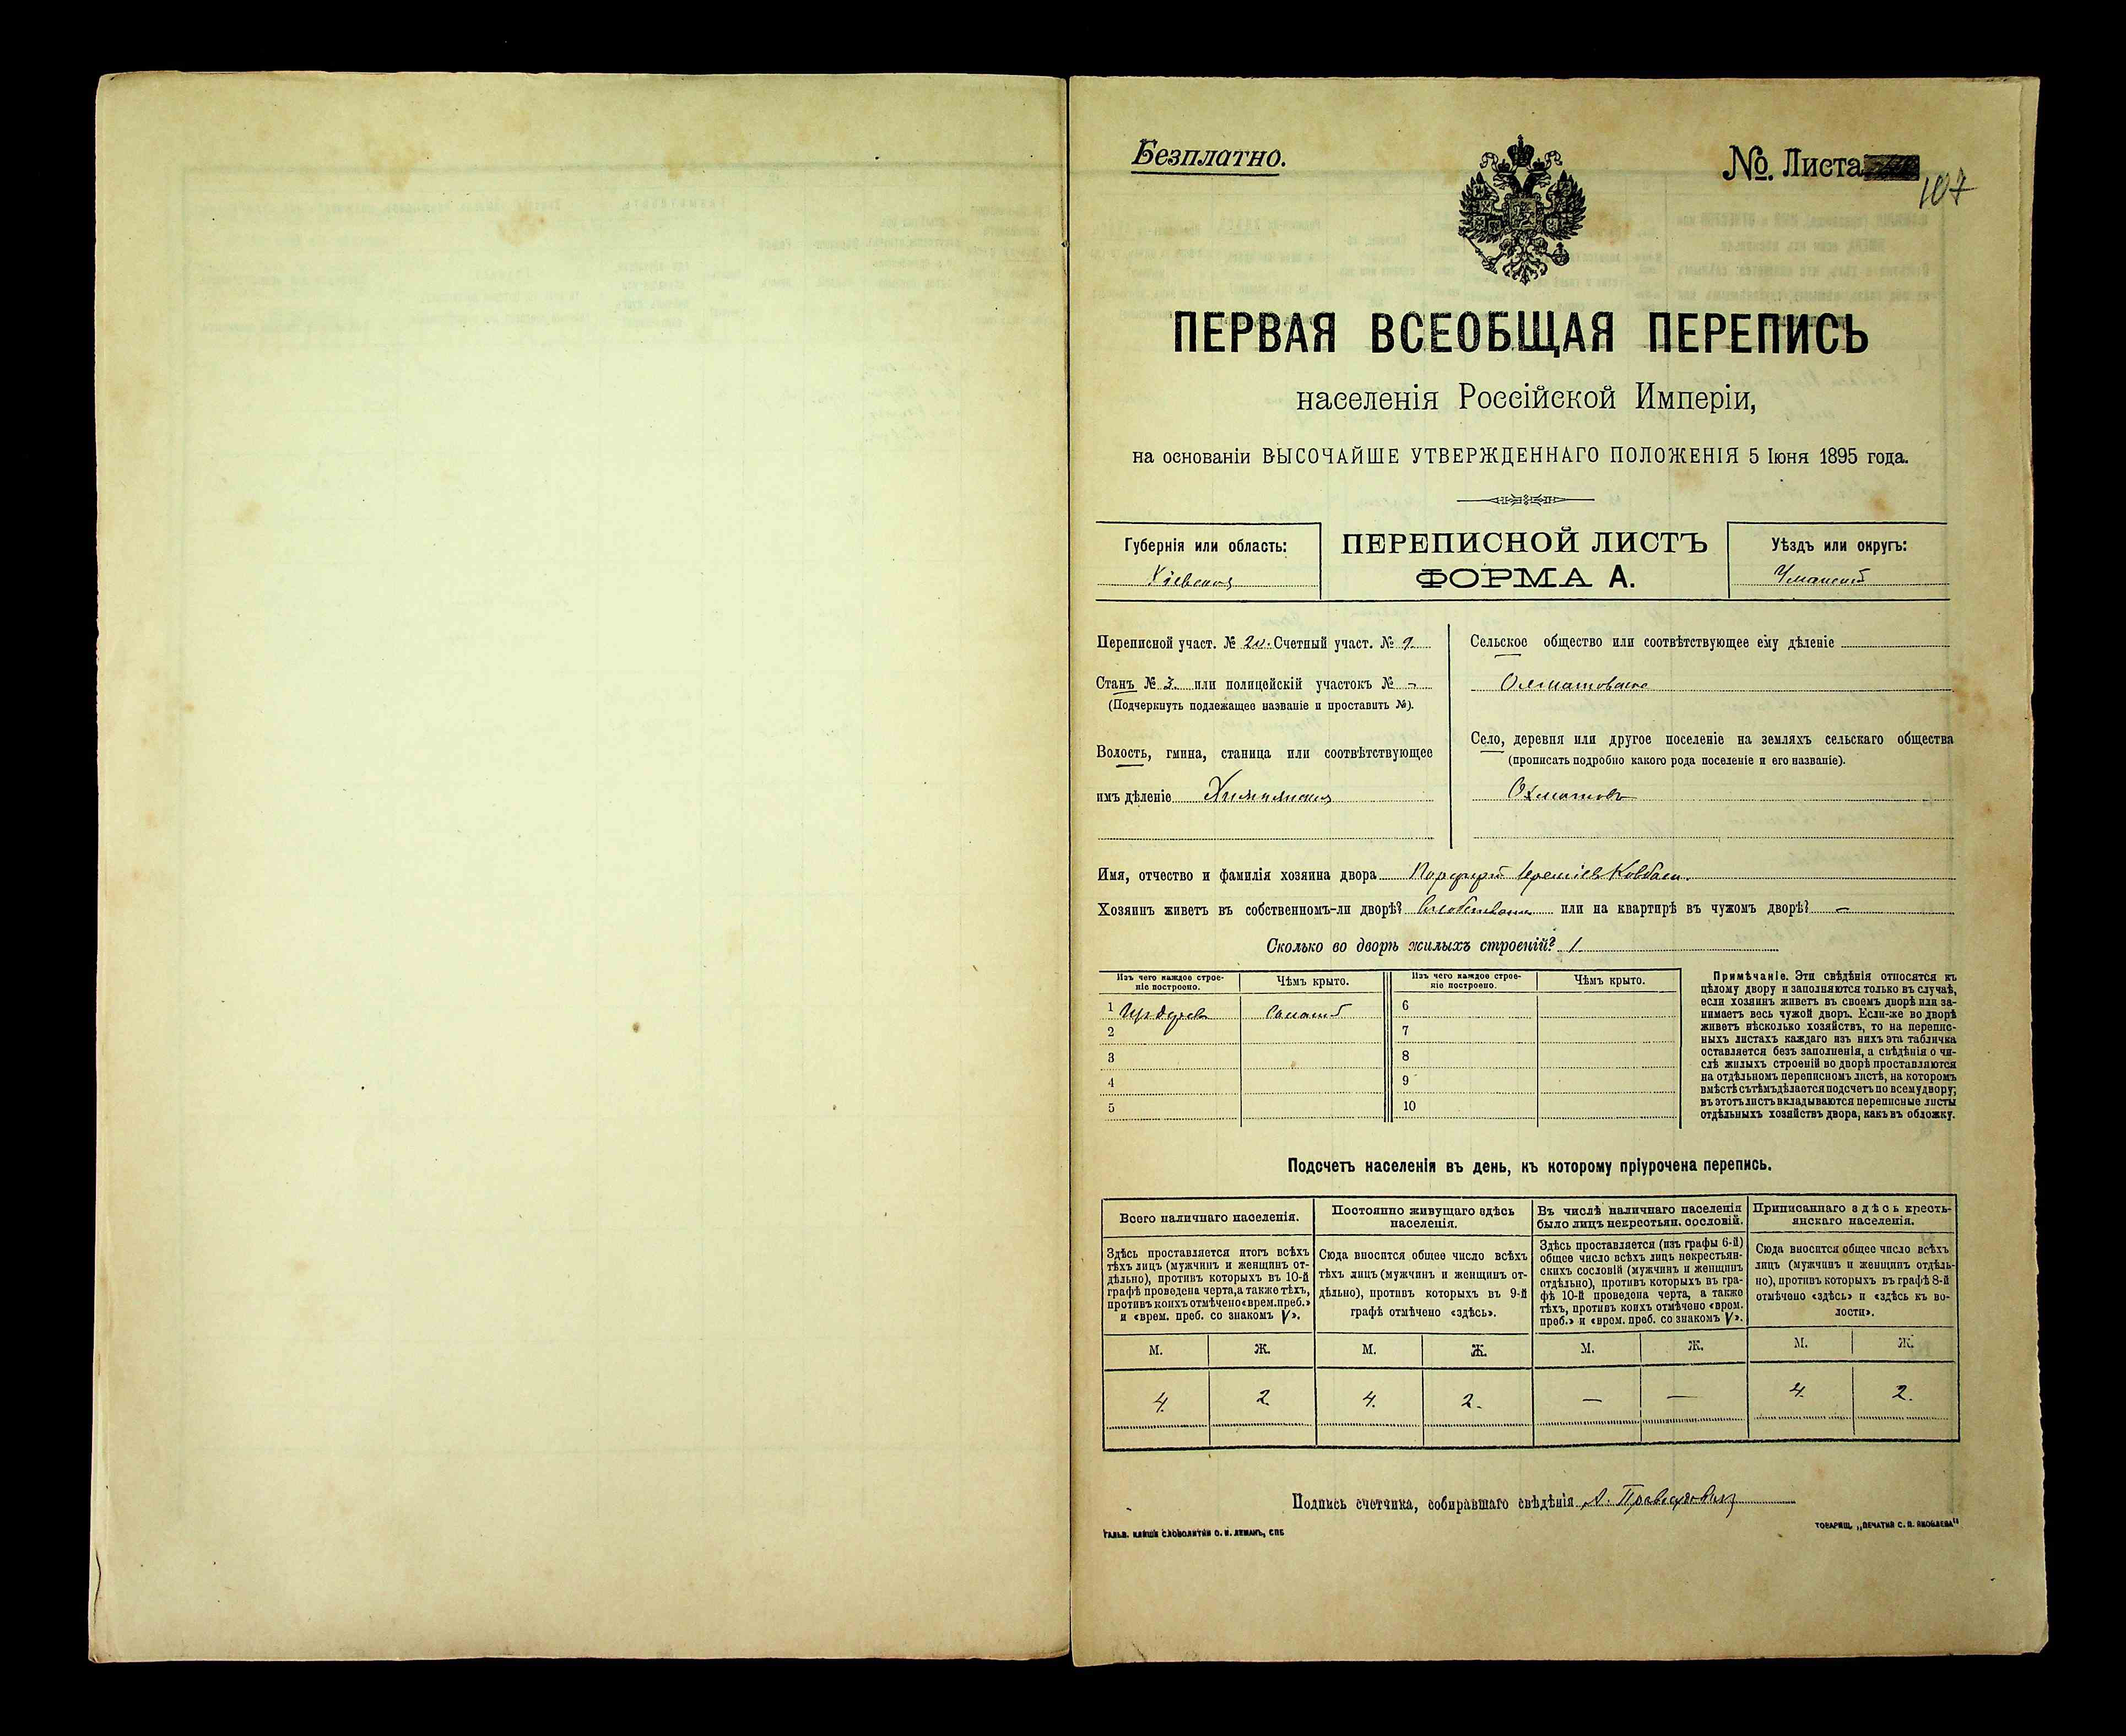 Безплатно.
№. Листа
107
ПЕРВАЯ ВСЕОБЩАЯ ПЕРЕПИСЬ
населенія Россійской Имперіи,
на основаніи ВЫСОЧАЙШЕ УТВЕРЖДЕННАГО ПОЛОЖЕНІЯ 5 Іюня 1895 года.
Губернія или область:
Кіевская
ПЕРЕПИСНОЙ ЛИСТЪ
ФОРМА А.
Уѣздъ или округъ:
Уманский
Переписной участ. № 20. Счетный участ. № 9.
Станъ № 3. или полицейскій участокъ № -
(Подчеркнуть подлежащее названіе и проставить №).
Волость, гмина, станица или соотвѣтствующее
имъ дѣленіе
Сельское общество или соотвѣтствующее ему дѣленіе
Село, деревня или другое поселеніе на земляхъ сельскаго общества
(прописать подробно какого рода поселеніе и его названіе).
Охматовъ
Имя, отчество и фамилія хозяина двора Порфирій Ковбаса.
Хозяинъ живетъ въ собственномъ-ли дворѣ? или на квартирѣ въ чужомъ дворѣ? —
Сколько во дворѣ жилыхъ строеній? 1
Изъ чего каждое строе-
ніе построено.
Чѣмъ крыто.
Изъ чего каждое строе-
ніе построено.
Чѣмъ крыто.
1 Соломой 6
2 7
3 8
4 9
5 10
Примѣчаніе. Эти свѣдѣнія относятся къ
цѣлому двору и заполняются только въ случаѣ,
если хозяинъ живетъ въ своемъ дворѣ или за-
нимаетъ весь чужой дворъ. Если-же во дворѣ
живетъ нѣсколько хозяйствъ, то на перепис-
ныхъ листахъ каждаго изъ нихъ эта табличка
оставляется безъ заполненія, а свѣдѣнія о чи-
слѣ жилыхъ строеній во дворѣ проставляются
на отдѣльномъ переписномъ листѣ, на которомъ
вмѣстѣ съ тѣмъ дѣлается подсчетъ по всему двору;
въ этотъ листъ вкладываются переписные листы
отдѣльныхъ хозяйствъ двора, какъ въ обложку.
Подсчетъ населенія въ день, къ которому пріурочена перепись.
Всего наличнаго населенія.
Здѣсь проставляется итогъ всѣхъ
тѣхъ лицъ (мужчинъ и женщинъ от-
дѣльно), противъ которыхъ въ 10-й
графѣ проведена черта, а также тѣхъ,
противъ коихъ отмѣчено «врем. преб.»
и «врем. преб. со знакомъ V».
Постоянно живущаго здѣсь
населенія.
Сюда вносится общее число всѣхъ
тѣхъ лицъ (мужчинъ и женщинъ от-
дѣльно), противъ которыхъ въ 9-й
графѣ отмѣчено «здѣсь».
Въ числѣ наличнаго населенія
было лицъ некрестьян. сословій.
Здѣсь проставляется (изъ графы 6-й)
общее число всѣхъ лицъ некрестьян-
скихъ сословій (мужчинъ и женщинъ
отдѣльно), противъ которыхъ въ гра-
фѣ 10-й проведена черта, а также
тѣхъ, противъ коихъ отмѣчено «врем.
преб.» и «врем. преб. со знакомъ V».
Приписаннаго здѣсь кресть-
янскаго населенія.
Сюда вносится общее число всѣхъ
лицъ (мужчинъ и женщинъ отдѣль-
но), противъ которыхъ въ графѣ 8-й
отмѣчено «здѣсь» и «здѣсь къ во-
лости».
М. Ж. М. Ж. М. Ж. М. Ж.
4. 2. 4. 2. — — 4. 2.
Подпись счетчика, собиравшаго свѣдѣнія
ГАЛЬВ. КЛИШЕ СЛОВОЛИТНИ О. И. ЛЕМАНЪ, СПБ
ТОВАРИЩ. „ПЕЧАТНЯ С. П. ЯКОВЛЕВА"